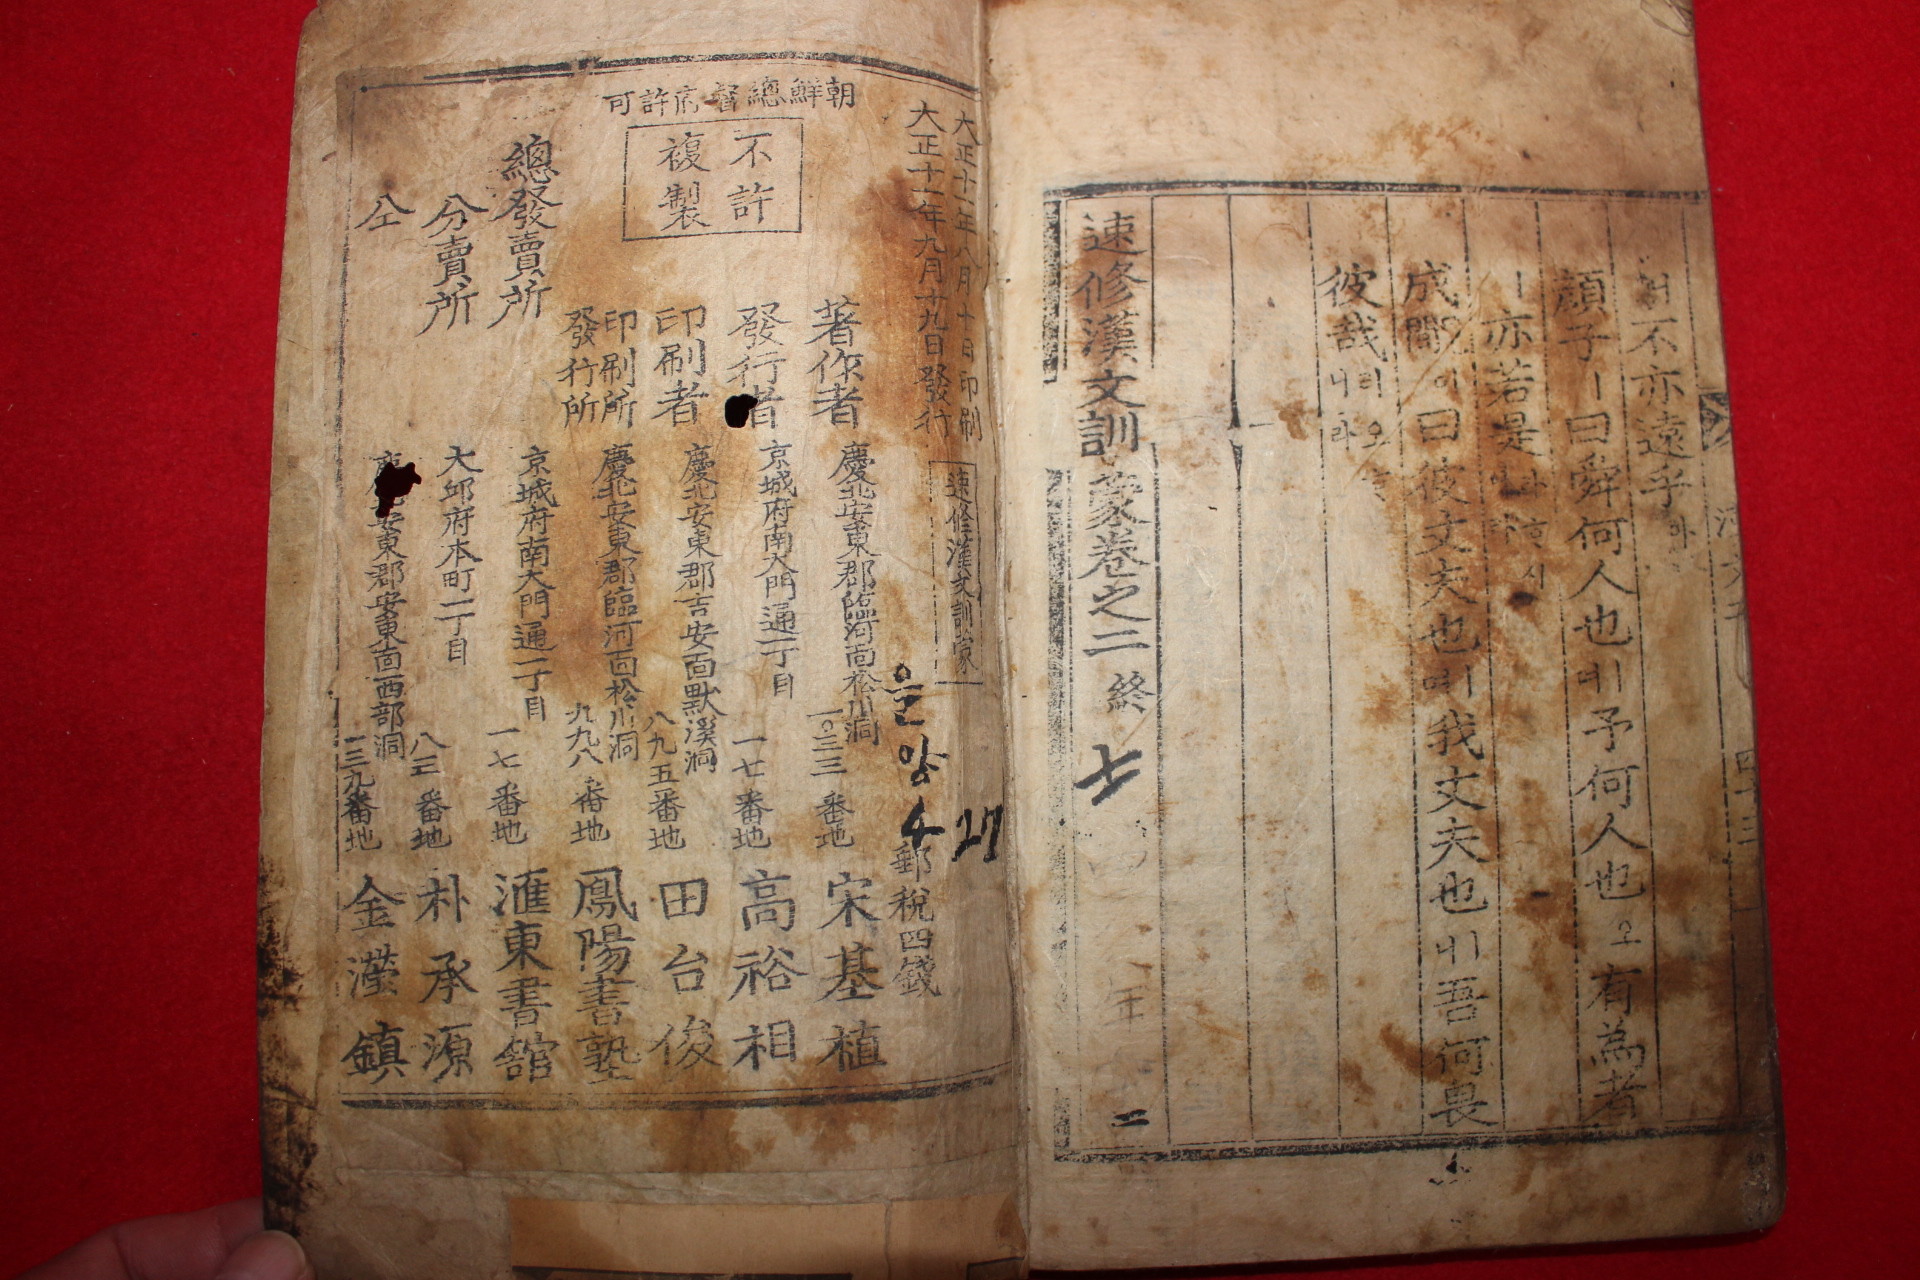 不亦遠乎
顔子ㅣ曰舜何人也ㅣ予何人也오有為者
ㅣ亦若是
成覸이曰彼丈夫也며我丈夫也ㅣ吾何畏
彼哉리오니라
速修漢文訓蒙卷之二 終
七
朝鮮總督府許可
大正十一年八月十日印刷
大正十一年九月十九日發行
速修漢文訓蒙
郵稅四錢
을 앙
4 27
不許
複製
著作者 慶北安東郡臨河面松川洞一〇三三番地 宋基植
發行者 京城府南大門通一丁目一七番地 高裕相
印刷者 慶北安東郡吉安面默溪洞八九五番地 田台俊
印刷所
發行所 慶北安東郡臨河面松川洞九九八番地 鳳陽書塾
總發賣所 京城府南大門通一丁目一七番地 滙東書舘
分賣所 大邱府本町二丁目八三番地 朴承源
仝 慶北安東郡安東面西部洞一三九番地 金瀅鎮